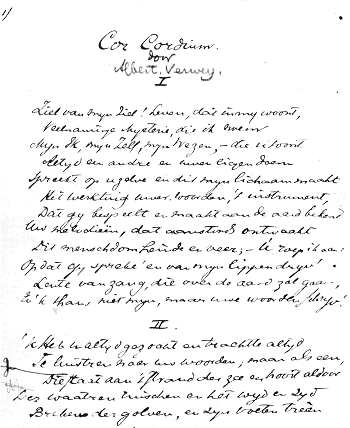 1/
Cor Cordium.
door
Albert. Verwey.
I
Ziel van mijn Ziel! Leven, dat in my woont,
Veelnamige Mysterie, die ik noem
Myn Ik, myn Zelf, myn Wezen, – die
Altyd een andre en uw eigen doem
Spreekt op uzelve en dit myn lichaam maakt
Het werktuig uwer woorden, 't instrument,
Dat gy bespeelt en maakt aan de aard bekend
Uw melodieën, dat aanstonds ontwaakt
Dit menschdom en weer; – U roep ik aan:
Opdat gy spreke en van myn lippen
Lente van zang, die over de aard zal gaan,
En 'k thans niet myn, maar uwe woorden
II.
'k Heb U altyd gezocht en trachtte altyd
Te luistren naar uw woorden; maar als een,
Die staat aan 't strand der zee en hoort aldoor
Der waatren ruischen en het wyd en zyd
Breken der golven, en zyn voeten treên